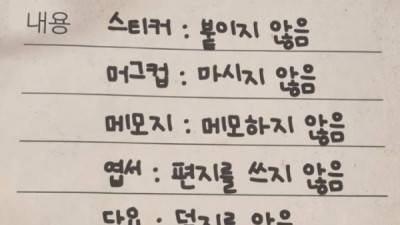 내용 스티커 : 붙이지 않음
머그컵 : 마시지 않음
메모지 : 메모하지 않음
엽서 : 편지를 쓰지 않음